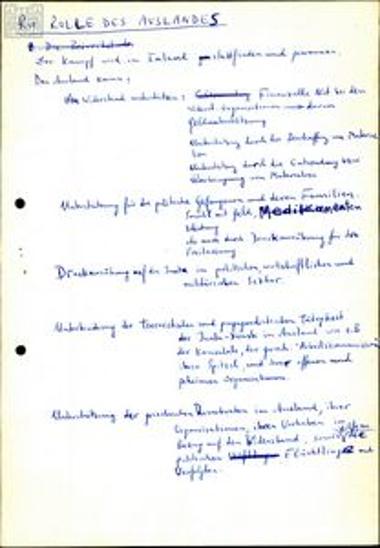 ROLLE DES AUSLANDES
Der Kampf wird im Inland stattfinden und gewonnen.
Das Ausland kann:
den Widerstand unterstützen: Finanzielle Hilf bei den
Widerst. Organisationen und deren
Unterstützung durch der Beschaffung von Material
von
Unterstützung durch die Entsendung bzw
von Materialien
Unterstützung für die politische Gefangenen und deren Familien.
mit Geld, Medikamenten
Kleidung
als auch durch Druckausübung für ihre
Freilassung
Druckausübung auf die Junta im politischen, wirtschaftlichen und
militärischen Sektor.
Unterbindung der terroristischen und propagandistischen Tätigkeit
der Junta-Dienste im Ausland wie z.B
der Konsulate, der griech.
ihre Spitzel, und ihrer offenen und
geheimen Organisationen.
Unterstützung der griechischen Demokraten im Ausland, ihrer
Organisationen, ihren Vorhaben im
Bezug auf den Widerstand, sowie die
politischen Flüchtlinge und
Verfolgten.